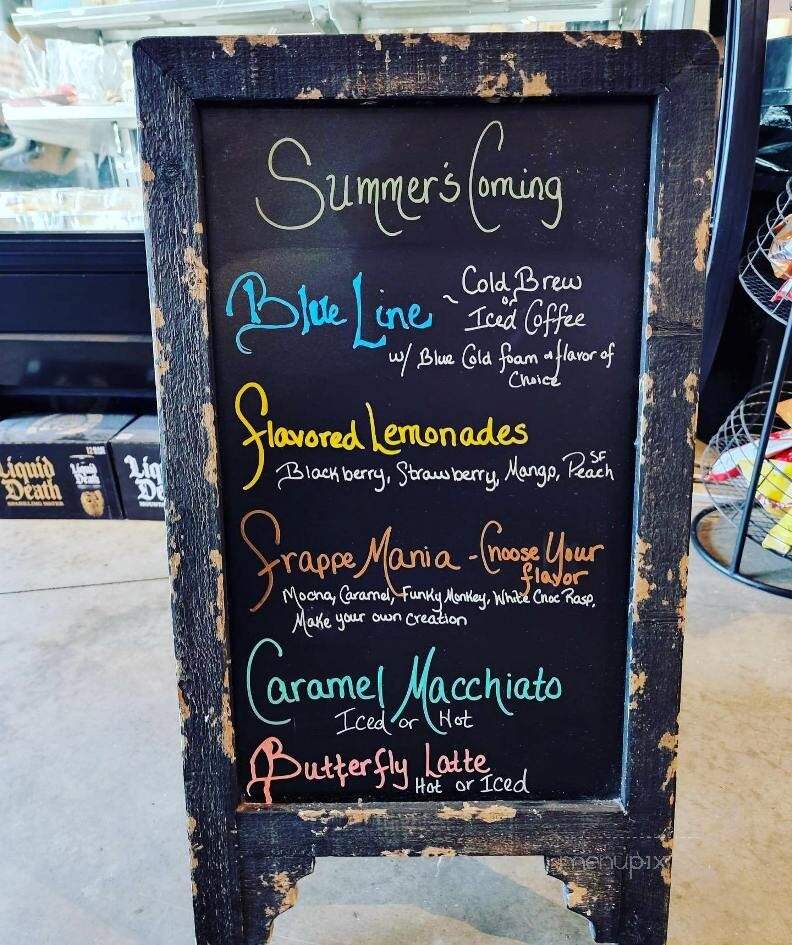 Summer's Coming
Blue Line ~ Cold Brew
or
Iced Coffee
w/ Blue Cold foam & flavor of
Choice
Flavored Lemonades
SF
Blackberry, Strawberry, Mango, Peach
Frappe Mania - Choose Your
flavor
Mocha, Caramel, Funky Monkey, White Choc Rasp,
Make your own creation
Caramel Macchiato
Iced or Hot
Butterfly Latte
Hot or Iced
Liquid
Death
SPARKLING WATER
Liquid
Death
menupix